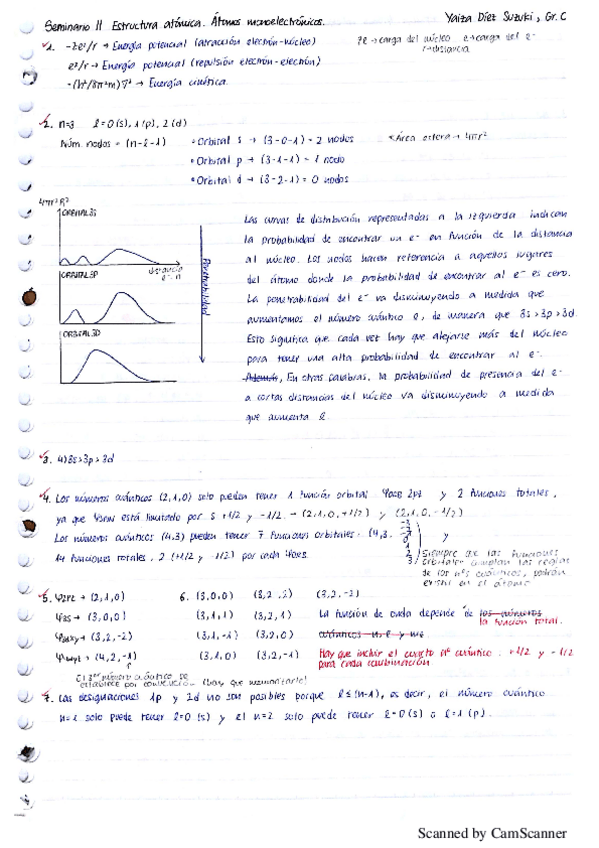 Seminario 11 Estructura atómica. Átomos monoelectrónicos. Yaiza Díez Suzuki, Gr. C
1. -Ze²/r → Energía potencial (atracción electrón-núcleo) Ze → carga del núcleo e → carga del e⁻
r → distancia
e²/r → Energía potencial (repulsión electrón-electrón)
-(h²/8π²m)∇² → Energía cinética.
2. n=3 l=0(s), 1(p), 2(d)
Núm. nodos = (n-l-1) • Orbital s → (3-0-1) = 2 nodos *Área esfera → 4πr²
• Orbital p → (3-1-1) = 1 nodo
• Orbital d → (3-2-1) = 0 nodos
4πr²R²
ORBITAL 3S
distancia
e⁻-n
ORBITAL 3P
ORBITAL 3D
Penetrabilidad
Las curvas de distribución representadas a la izquierda indican
la probabilidad de encontrar un e⁻ en función de la distancia
al núcleo. Los nodos hacen referencia a aquellos lugares
del átomo donde la probabilidad de encontrar al e⁻ es cero.
La penetrabilidad del e⁻ va disminuyendo a medida que
aumentamos el número cuántico l, de manera que 3s>3p>3d.
Esto significa que cada vez hay que alejarse más del núcleo
para tener una alta probabilidad de encontrar al e⁻.
Además, En otras palabras, la probabilidad de presencia del e⁻
a cortas distancias del núcleo va disminuyendo a medida
que aumenta l.
3. 4) 3s>3p>3d
4. Los números cuánticos (2,1,0) solo pueden tener 1 función orbital y 2 funciones totales,
ya que está limitado por s +1/2 y -1/2 → (2,1,0,+1/2) y (2,1,0,-1/2)
Los números cuánticos (4,3) pueden tener 7 funciones orbitales: (4,3, -3 -2 -1 0 1 2 3) y
14 funciones totales, 2 (+1/2 y -1/2) por cada
Siempre que las funciones
orbitales cumplan las reglas
de los nºs cuánticos, podrán
existir en el átomo
5. → (2,1,0) 6. (3,0,0) (3,2,2) (3,2,-2)
Ψ3s → (3,0,0) (3,1,1) (3,2,1) La función de onda depende de los números
la función total.
Ψ3dxy → (3,2,-2) (3,1,-1) (3,2,0) cuánticos n, l y
→ (4,2,-1) (3,1,0) (3,2,-1) Hay que incluir el cuarto nº cuántico: +1/2 y -1/2
para cada combinación.
El 3er número cuántico se
establece por convención (hay que memorizarlo)
7. Las designaciones 1p y 2d no son posibles porque l≤(n-1), es decir, el número cuántico
n=1 solo puede tener l=0 (s) y el n=2 solo puede tener l=0(s) o l=1(p).
Scanned by CamScanner